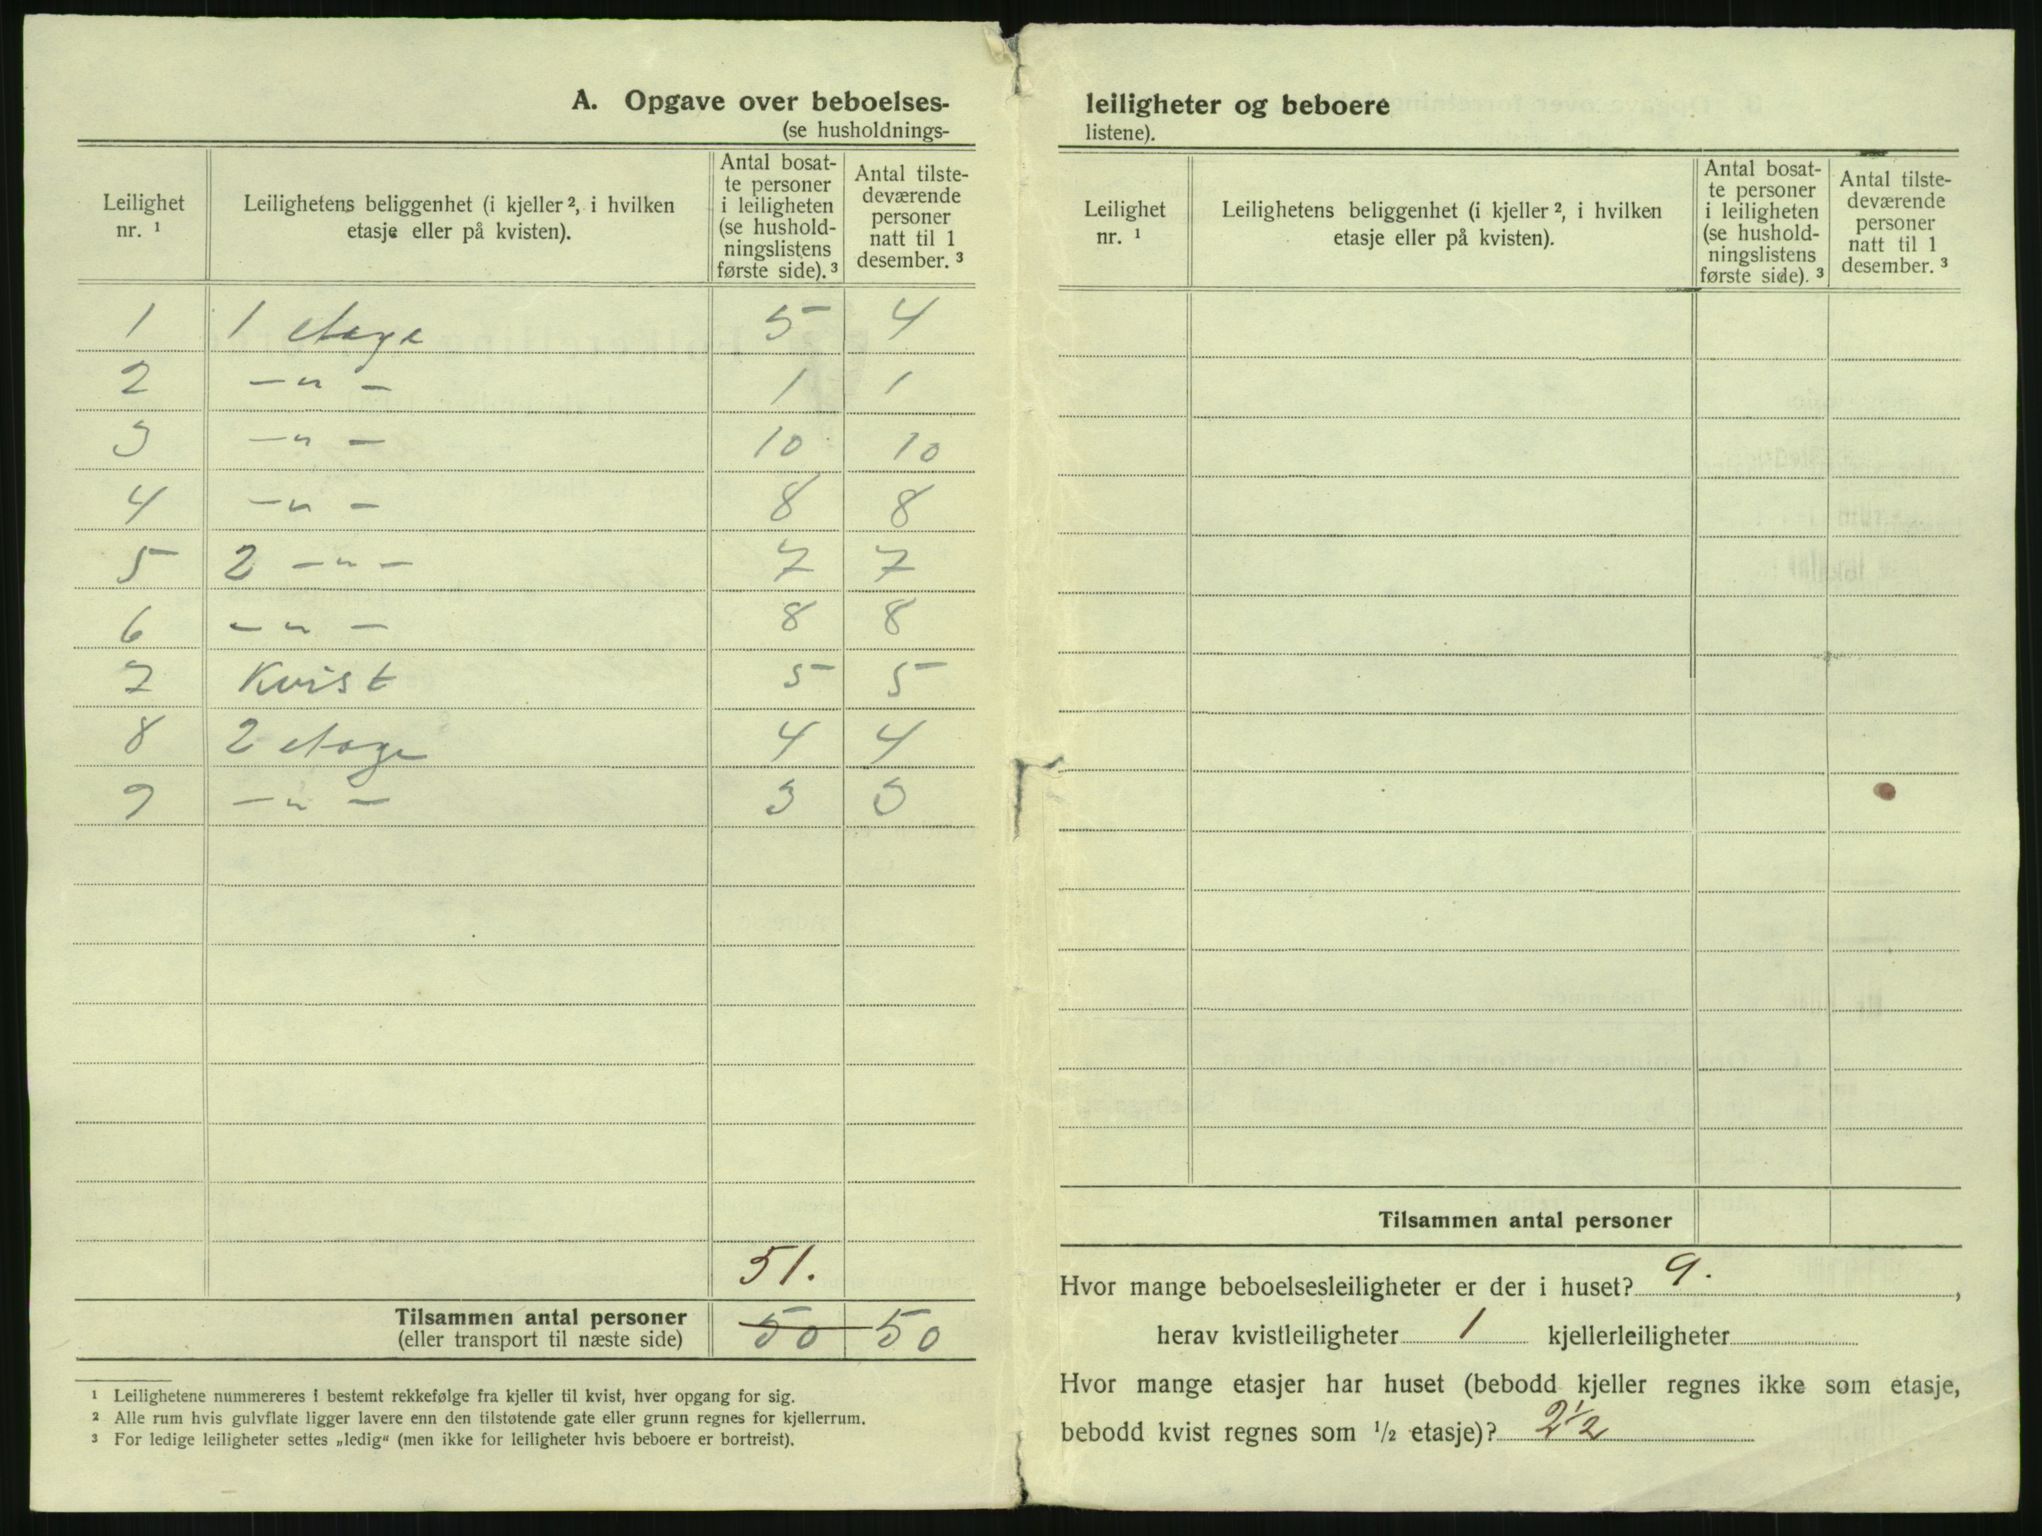 A. Opgave over beboelses-
(se husholdnings-
Leilighet nr. ¹
Leilighetens beliggenhet (i kjeller ², i hvilken etasje eller på kvisten).
Antal bosatte personer i leiligheten (se husholdningslistens første side). ³
Antal tilstedeværende personer natt til 1 desember. ³
1 1 etage 5 4
2 — " — 1 1
3 — " — 10 10
4 — " — 8 8
5 2 — " — 7 7
6 — " — 8 8
7 Kvist 5 5
8 2 etage 4 4
9 — " — 3 3
51.
Tilsammen antal personer 50 50
(eller transport til næste side)
¹ Leilighetene nummereres i bestemt rekkefølge fra kjeller til kvist, hver opgang for sig.
² Alle rum hvis gulvflate ligger lavere enn den tilstøtende gate eller grunn regnes for kjellerrum.
³ For ledige leiligheter settes „ledig" (men ikke for leiligheter hvis beboere er bortreist).
leiligheter og beboere
listene).
Leilighet nr. ¹
Leilighetens beliggenhet (i kjeller ², i hvilken etasje eller på kvisten).
Antal bosatte personer i leiligheten (se husholdningslistens første side). ³
Antal tilstedeværende personer natt til 1 desember. ³
Tilsammen antal personer
Hvor mange beboelsesleiligheter er der i huset? 9.,
herav kvistleiligheter 1 kjellerleiligheter
Hvor mange etasjer har huset (bebodd kjeller regnes ikke som etasje,
bebodd kvist regnes som ½ etasje)? 2½